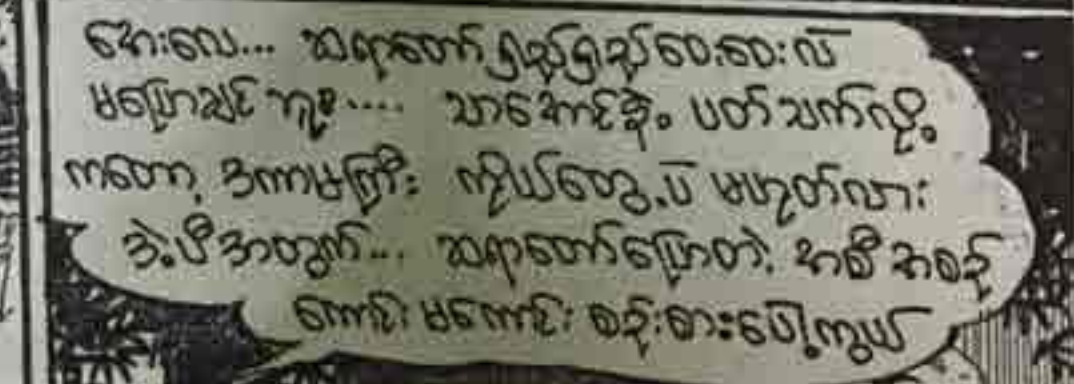 အေးလေ... ဆရာတော် ရှည်ရှည်ဝေးဝေးလဲ
မပြောချင်ဘူး.... သာအောင်နဲ့ ပတ်သက်လို့
ကတော့ ဒကာမကြီး ကိုယ်တွေ့ပဲ မဟုတ်လား
အဲ့ဒီအတွက်... ဆရာတော်ပြောတဲ့ အစီအစဉ်
ကောင်း မကောင်း စဉ်းစားပေါ့ကွယ်